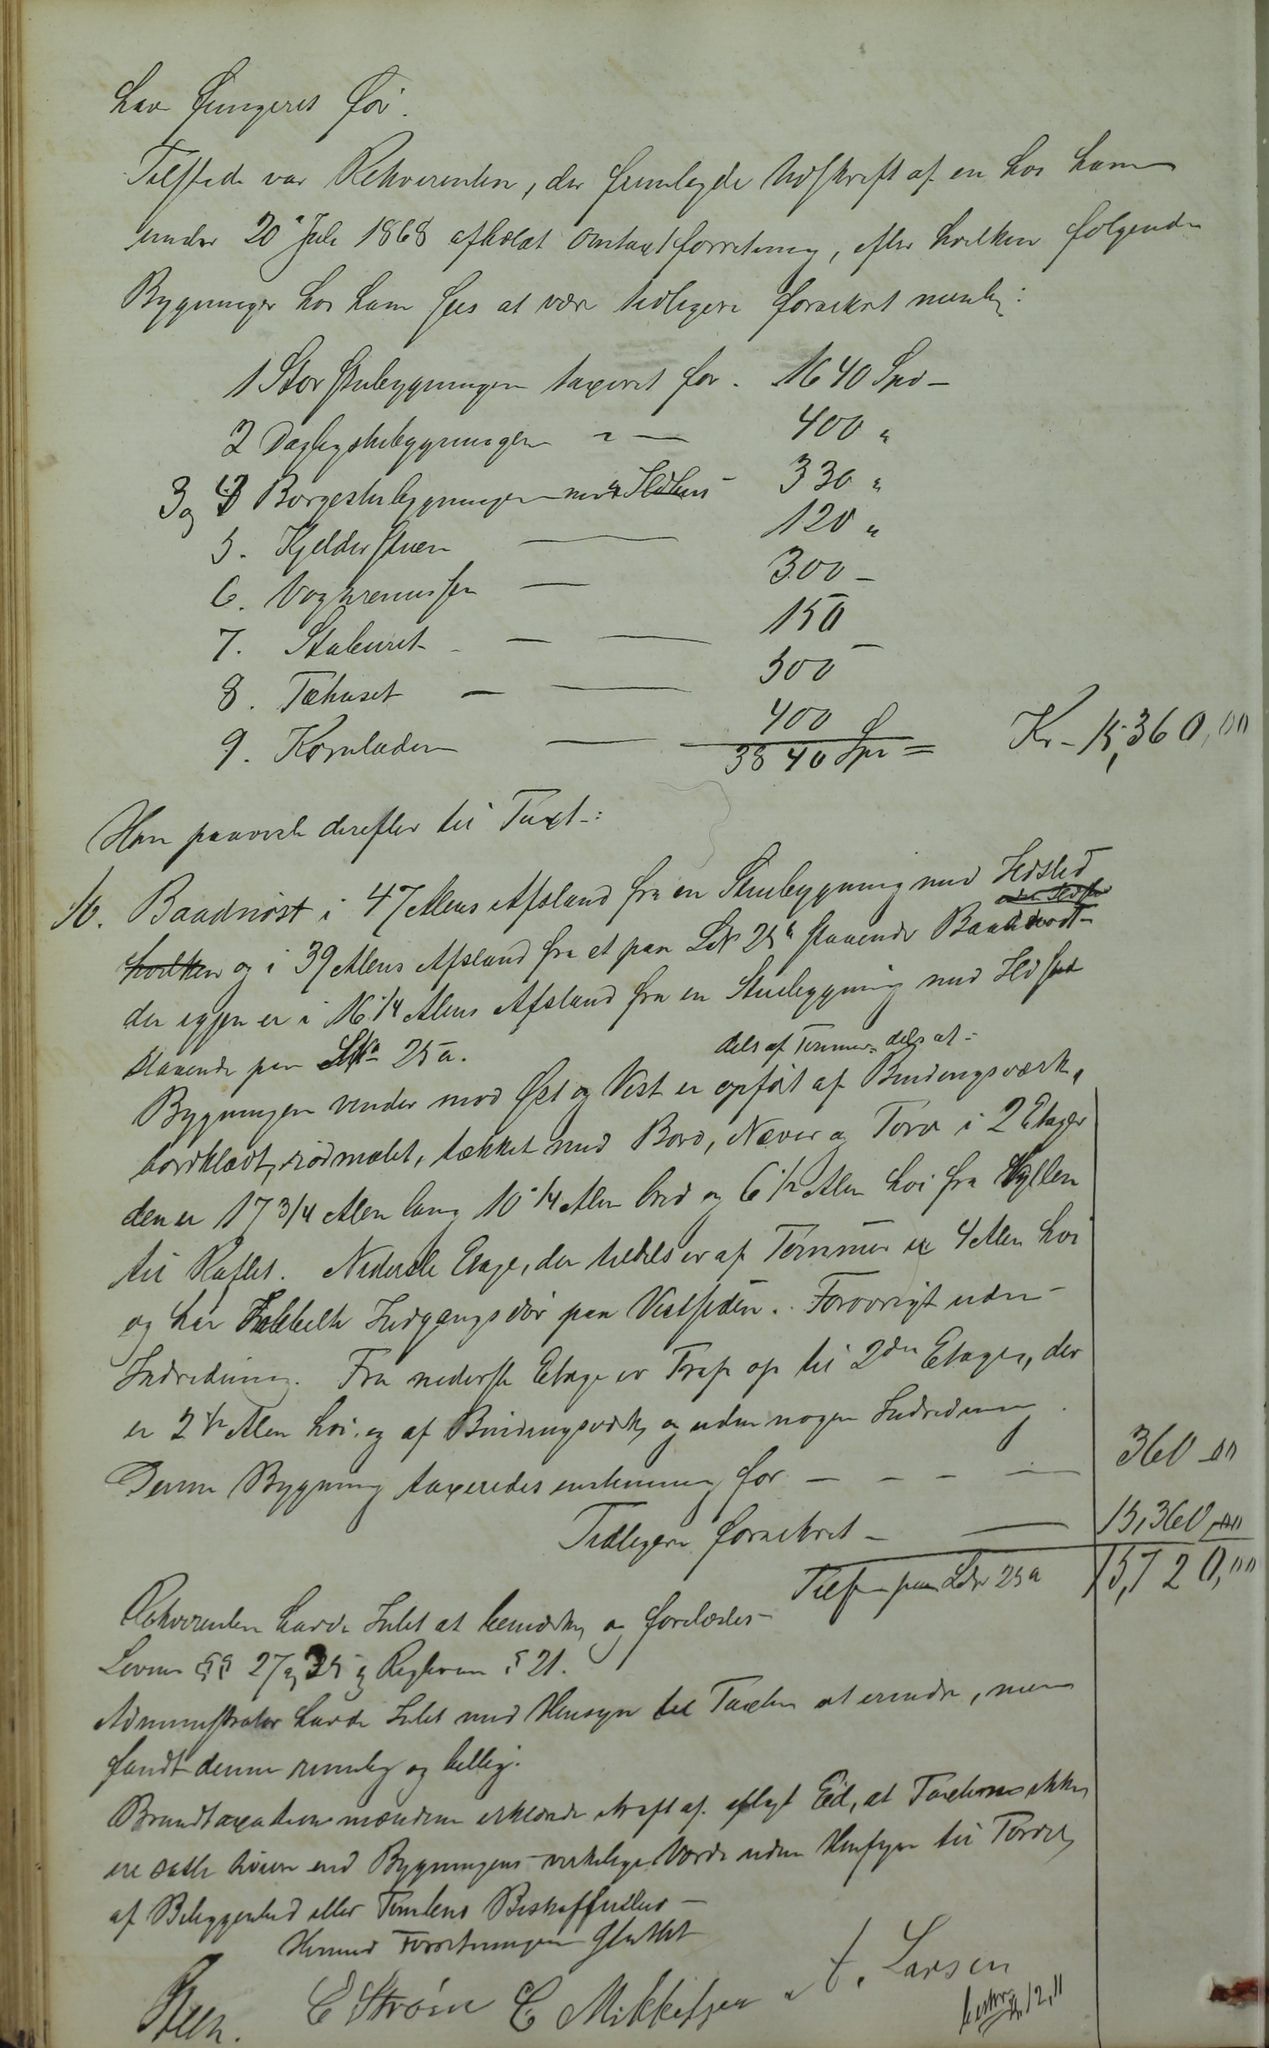 have fungeret før.
Tilstede var Rekvirenten, der fremlagde Udskrift af en hos ham
under 20de Juli 1868 afholdt Omtaxtforretning, efter hvilken følgende
Bygninger hos ham sees at være tidligere forsikret nemlig:
1 Storstubygningen taxeret for - 1640 Spd -
2 Dagligstubygningen " — 400 "
3 og 4 Borgestubygningen med Ildhus - 330 "
5. Kjelderstuen — 120 "
6. Vognremissen — 300 -
7. Staburet - — — 150
8. Fæhuset — — 500
9. Kornladen — 400
3840 Spd = Kr - 15,360,00
Han paaviste derefter til Taxt -:
10. Baadnøst i 47 Alens Afstand fra en Stuebygning med Ildsted
hvilken og i 39 Alens Afstand fra et paa LNo 25a staaende Baadnøst -
der igjen er i 16 1/4 Alens Afstand fra en Stuebygning med Ildsted
staaende paa LNo 25a.
dels af Tømmer - dels af -
Bygningen vender mod Øst og Vest er opført af Bindingsværk,
bordklædt, rødmalet, tækket med Bord, Næver og Torv i 2 Etager
den er 17 3/4 Alen lang 10 1/4 Alen bred og 6 1/2 Alen høi fra Syllen
til Raftet. Nederste Etage, der tildels er af Tømmer er 4 Alen høi
og har Dobbelte Indgangsdør paa Vestsiden. Forøvrigt uden
Indredning. Fra nederste Etage er Trap op til 2den Etage, der
er 2 1/2 Alen høi og af Bindingsværk og uden nogen Indredning.
Denne Bygning taxeredes enstemmig for - - - - — 360 00
Tidligere forsikret - — 15,360,00
Tilsn paa LNo 25a 15,720,00
Rekvirenten havde Intet at bemærke og forelæstes
Lovens §§ 27 og 35 og Reglem § 21.
Administrator havde Intet med Hensyn til Taxten at erindre, men
fandt denne rimelig og billig.
Brandtaxationsmændene erklærede i Kraft af aflagt Eid, at Taxterne ikke
ere satte høiere end Bygningens virkelige Værdi uden Hensyn til Fordel
af Beliggenhed eller Tomtens Beskaffenhed -
Hermed Forretningen sluttet
Steen. E Strøm C. Mikkelsen A. Larsen
12,11